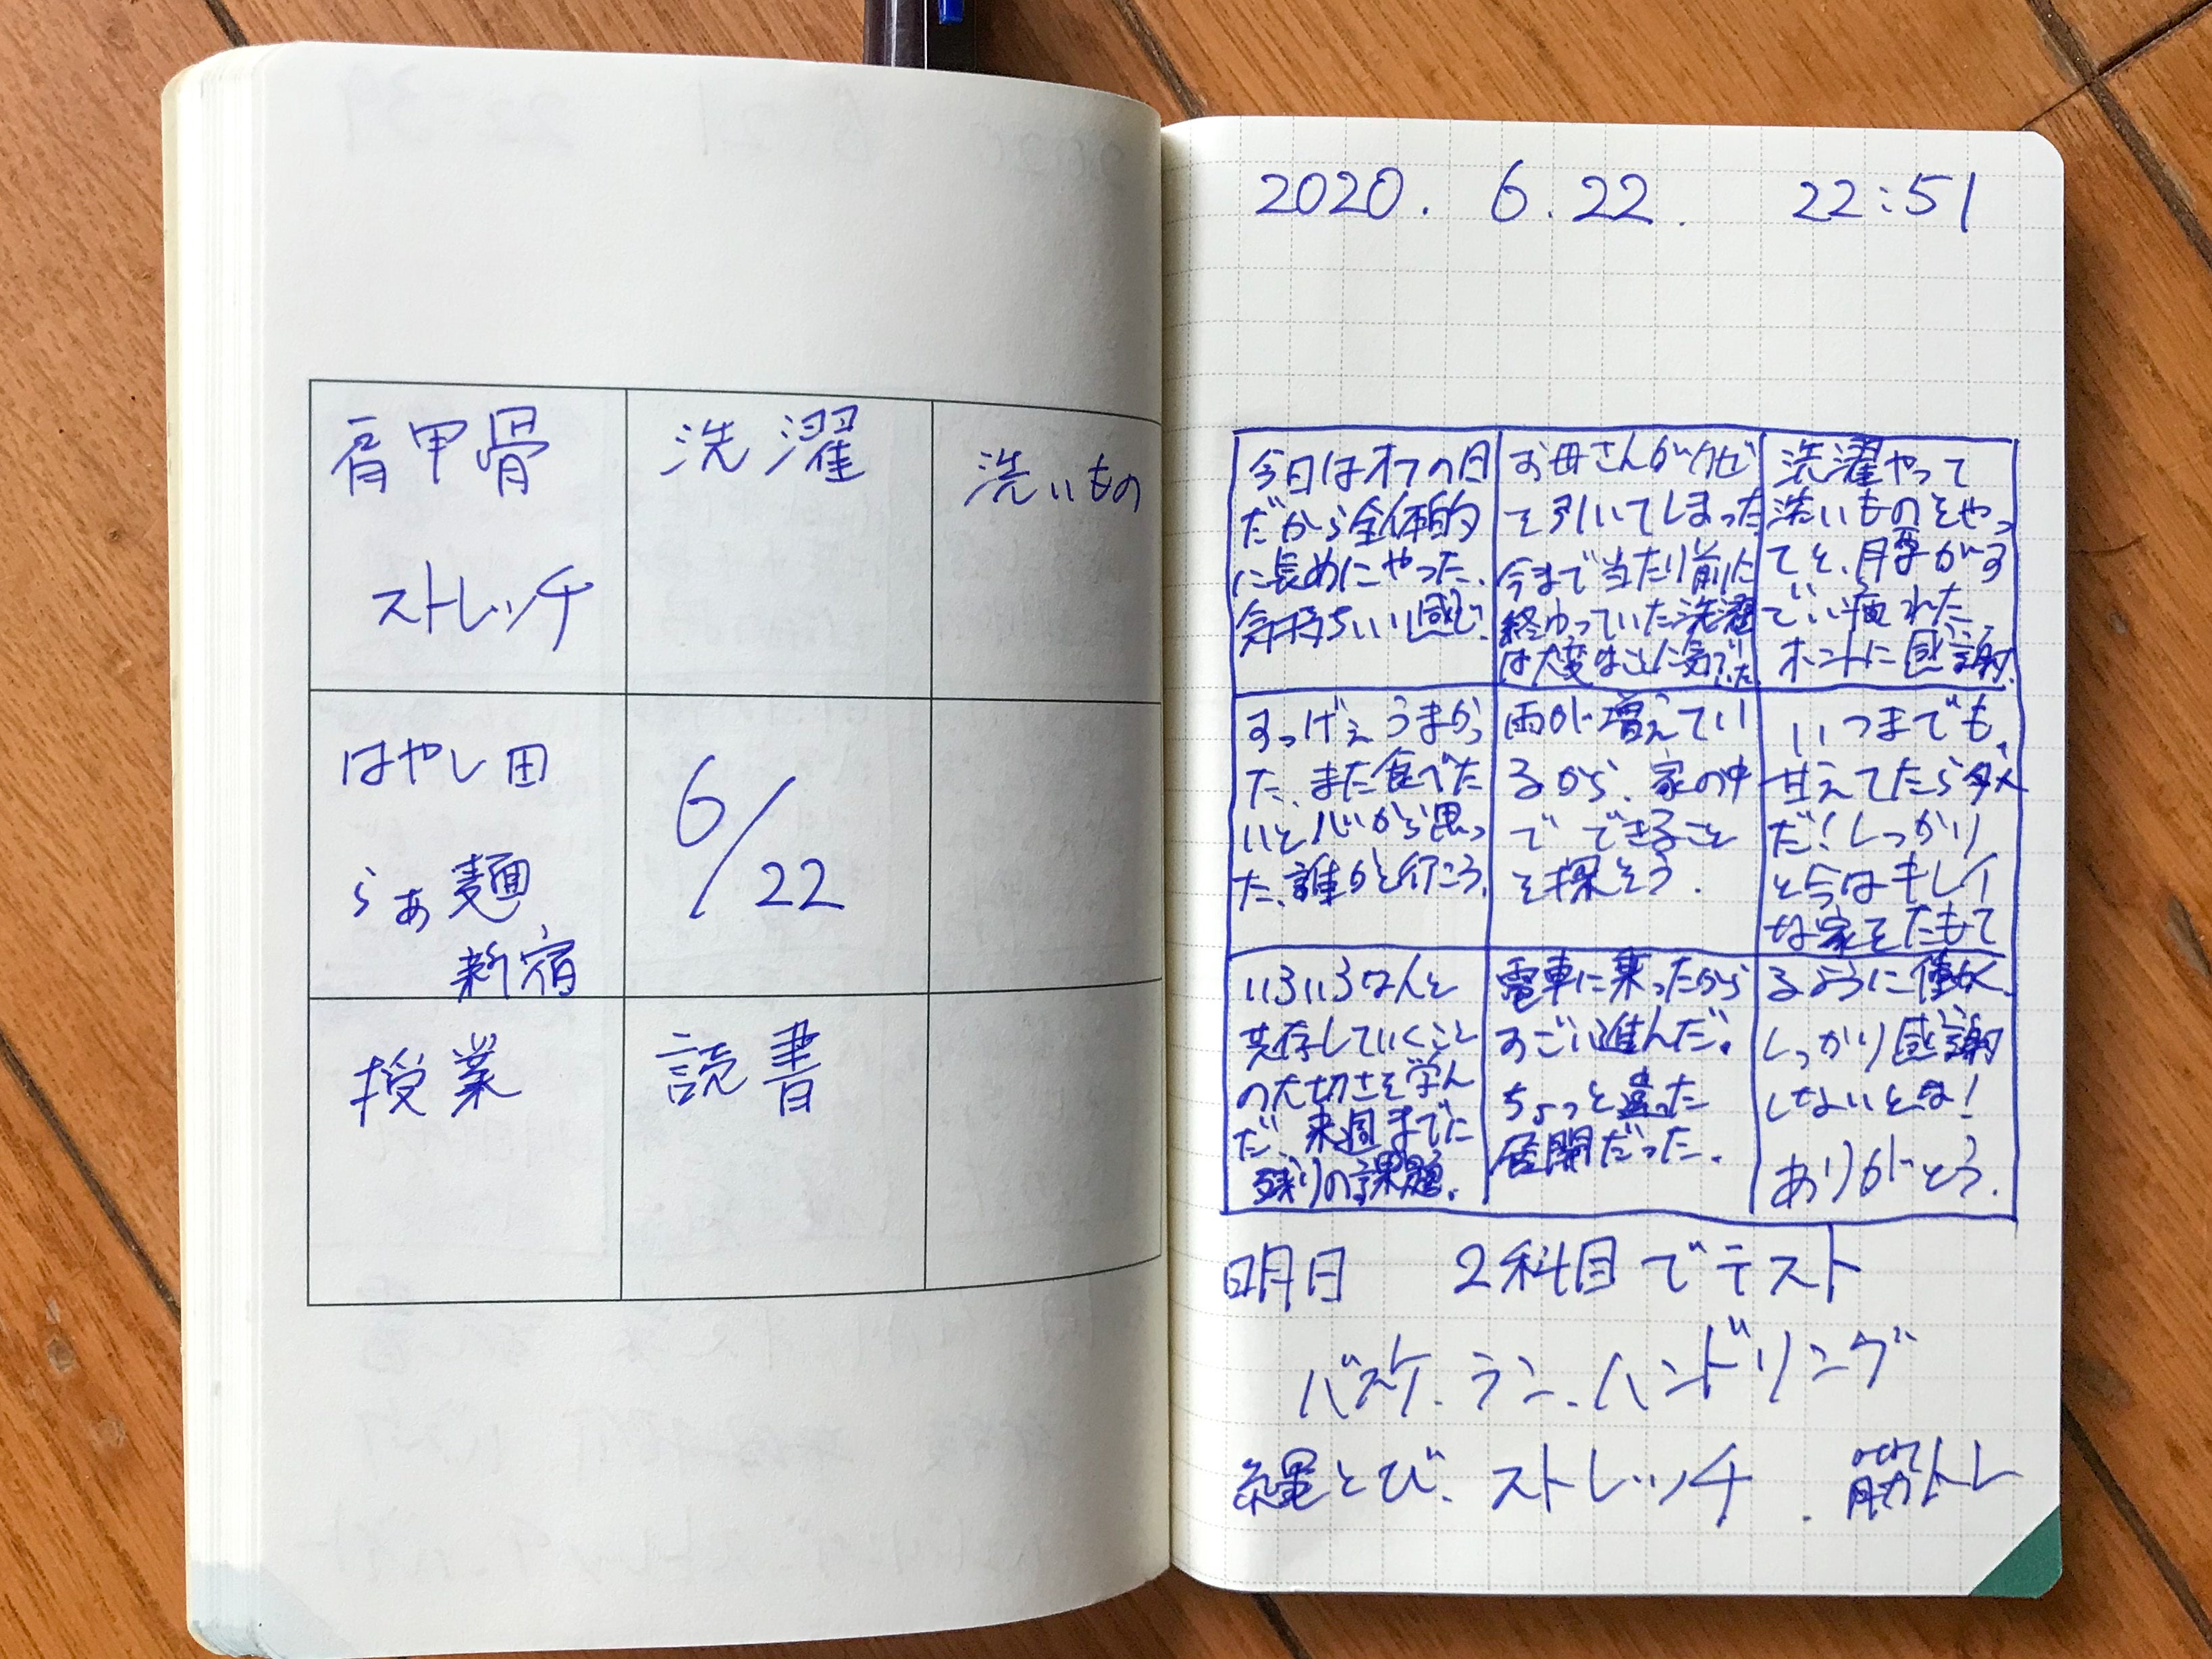 肩甲骨
ストレッチ
洗濯
洗いもの
はやし田
らぁ麺
新宿
6/22
授業
読書
2020. 6.22. 22:51
今日はオフの日
だから全体的
に長めにやった、
気持ちいい感じ。
お母さんがカゼ
を引いてしまった
今まで当たり前に
終わっていた洗濯
は大変なことに気づいた
洗濯やって
洗いものをやっ
てと、肩がす
でい疲れた、
ホントに感謝。
すっげえうまかっ
た、また食べた
いと心から思っ
た、誰かと行こう。
雨が増えてい
るから、家の中
で できること
を探そう.
いつまでも、
甘えてたらダメ
だ!しっかり
と今はキレイ
な家をたもて
いろいろな人と
共存していくこと
の大切さを学ん
だ、来週までに
残りの課題.
電車に乗ったから
すごい進んだ。
ちょっと違った
展開だった.
るように働く.
しっかり感謝
しないとな!
ありがとう.
明日 2科目でテスト
バスケ.ラン.ハンドリング
縄とび. ストレッチ . 筋トレ